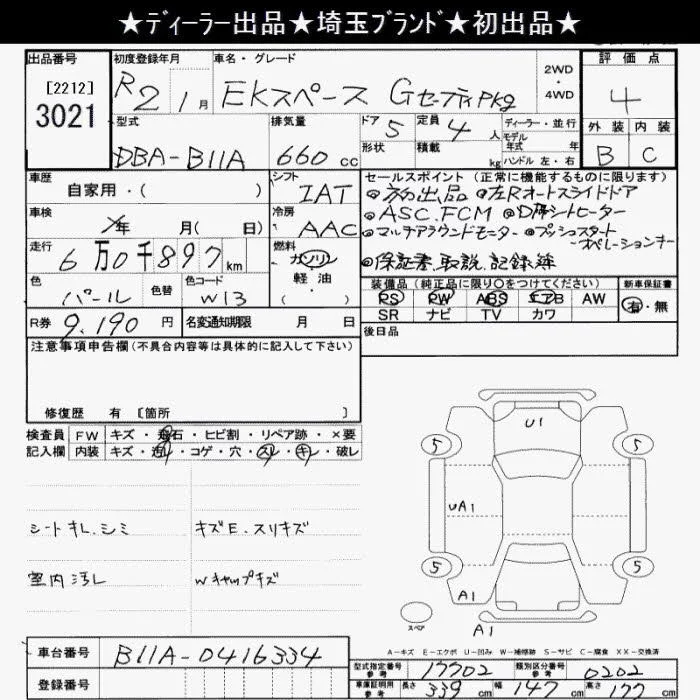 ★ディーラー出品★埼玉ブランド★初出品★
出品番号
[2212]
3021
初度登録年月
R2 1月
車名・グレード
EKスペース Gセーフティpkg
2WD
・
4WD
評価点
4
外装 内装
B C
型式
DBA-B11A
排気量
660 cc
ドア 5
形状
定員 4 人
積載 kg
ディーラー・並行
モデル
年式 年
ハンドル 左・右
車歴
自家用・( )
シフト
IAT
車検
年 月( 日)
冷房
AAC
走行
6万0千897km
燃料
ガソリン
軽油
( )
色
パール
色替
色コード
W13
R券
9,190 円
名変通知期限 月 日
セールスポイント(正常に機能するものに限ります)
◎初出品 ◎左Rオートスライドドア
◎ASC.FCM ◎D席シートヒーター
◎マルチアラウンドモニター ◎プッシュスタート
オペレーションキー
◎保証書.取説.記録簿
装備品(純正品に限り〇をつけてください)
PS PW ABS エアB AW
SR ナビ TV カワ
新車保証書
有・無
後日品
注意事項申告欄(不具合内容等は具体的に記入して下さい)
修復歴 有 [箇所 ]
検査員
記入欄
FW キズ・飛石・ヒビ割・リペア跡・×要
内装 キズ・汚れ・コゲ・穴・スレ・キレ・破レ
シートキレ.シミ
キズE.スリキズ
室内汚レ
Wキャップキズ
U1
5
5
UA1
5
5
A1
A1
スペア
A-キズ E-エクボ U-凹み W-補修跡 S-サビ C-腐食 XX-交換済
車台番号 B11A-0416334
登録番号
型式指定番号
参考
17702
類別区分番号
参考
0202
車庫証明用
参考
長さ 339 cm 幅 147 cm 高さ cm